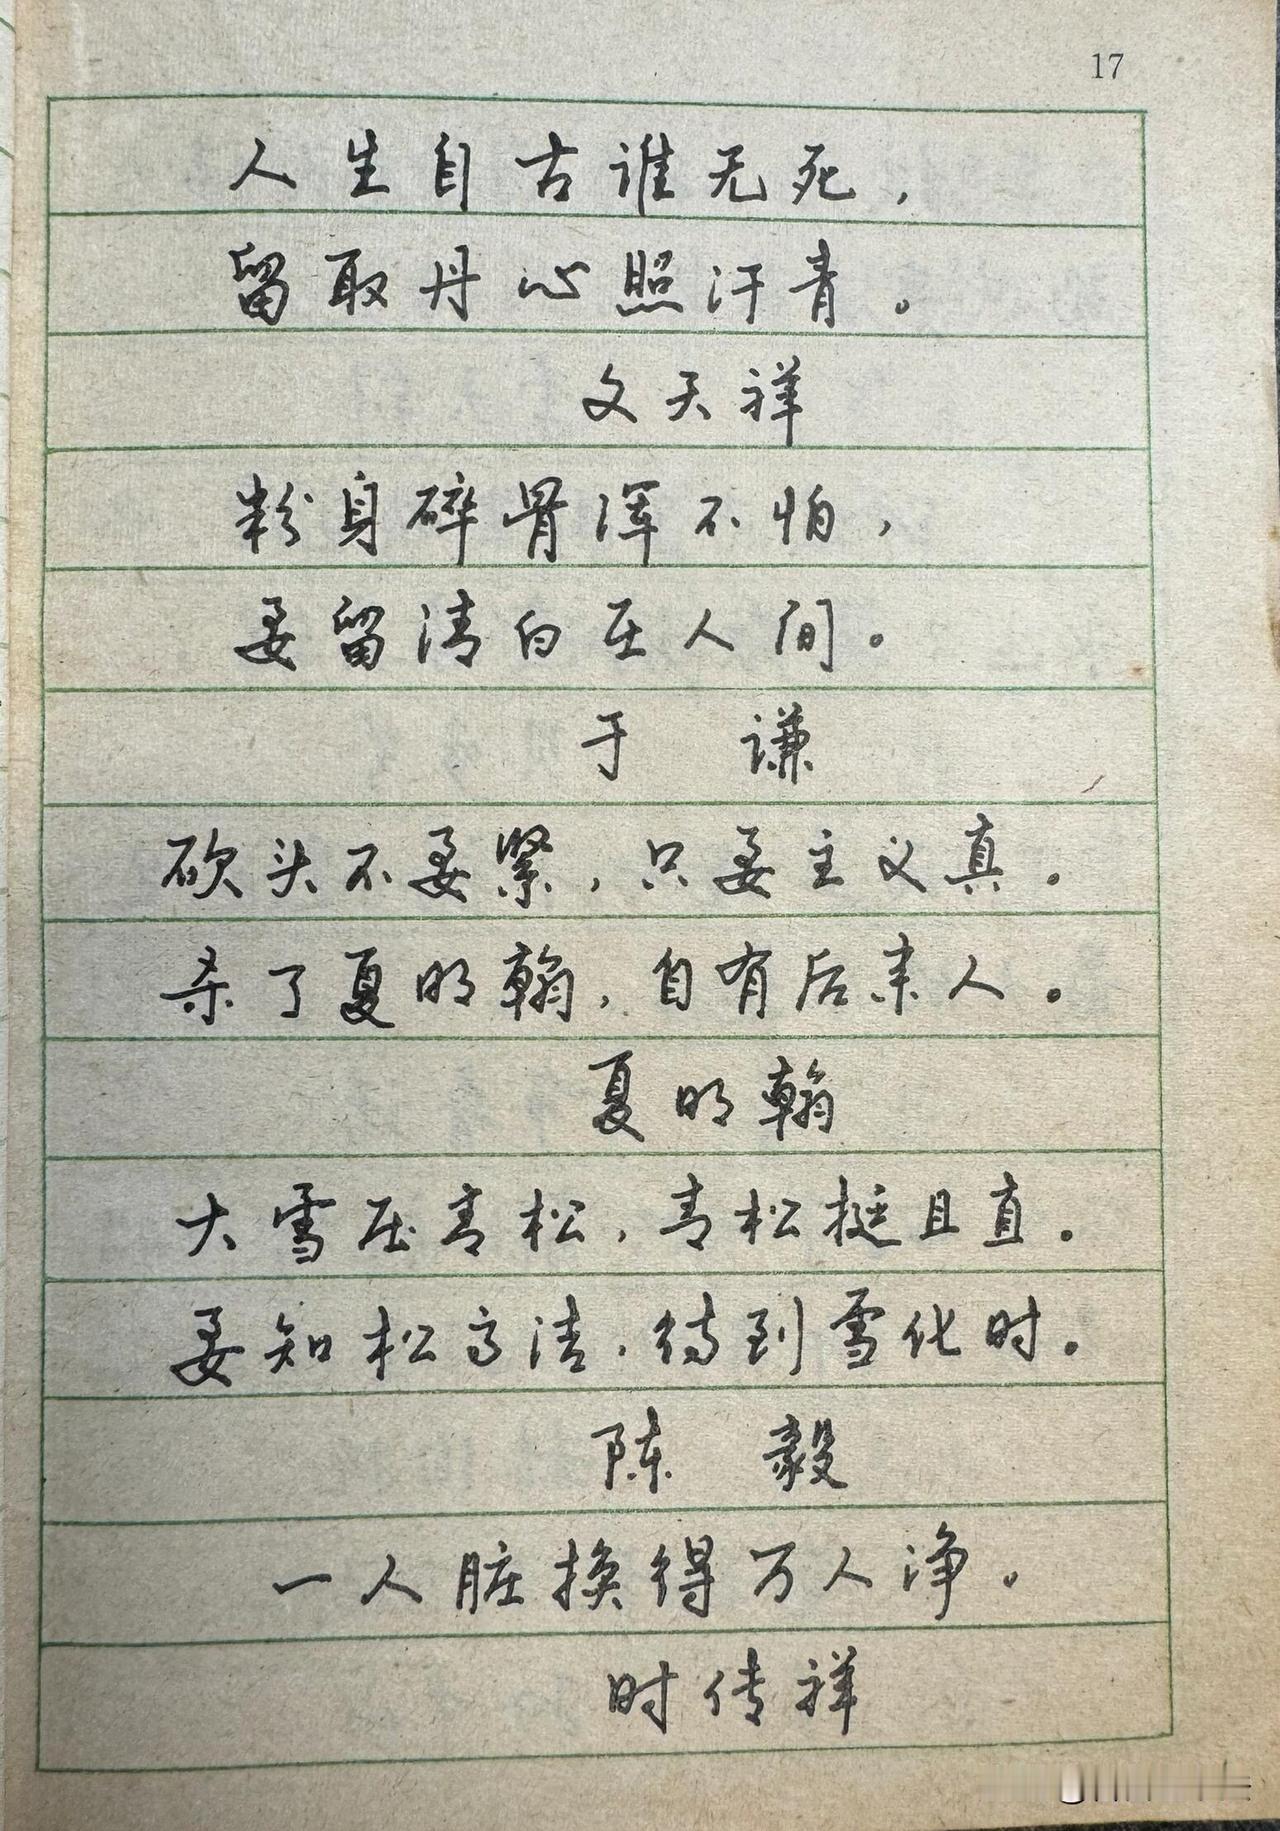 17
人生自古谁无死，
留取丹心照汗青。
文天祥
粉身碎骨浑不怕，
要留清白在人间。
于 谦
砍头不要紧，只要主义真。
杀了夏明翰，自有后来人。
夏明翰
大雪压青松，青松挺且直。
要知松高洁，待到雪化时。
陈 毅
一人脏换得万人净。
时传祥